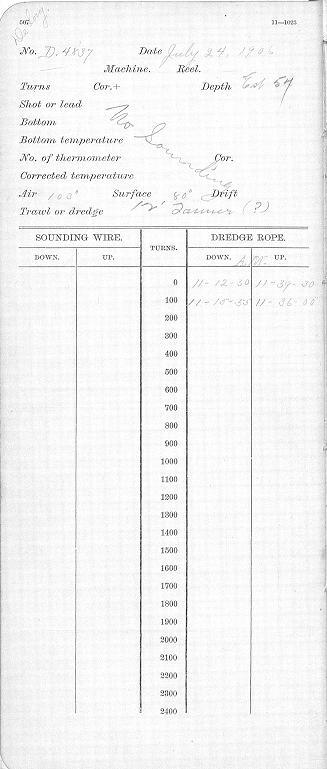 567 11—1023
No. D. 4837 Date July 24, 1906
Machine. Reel.
Turns Cor.+ Depth Est 54
Shot or lead
Bottom
Bottom temperature
No Sounding
No. of thermometer Cor.
Corrected temperature
Air 100° Surface 80° Drift
Trawl or dredge 12' Tanner (?)
SOUNDING WIRE. TURNS. DREDGE ROPE.
DOWN. UP. DOWN. A.M. UP.
0 11-12-30 11-39-30
100 11-15-35 11-36-00
200
300
400
500
600
700
800
900
1000
1100
1200
1300
1400
1500
1600
1700
1800
1900
2000
2100
2200
2300
2400